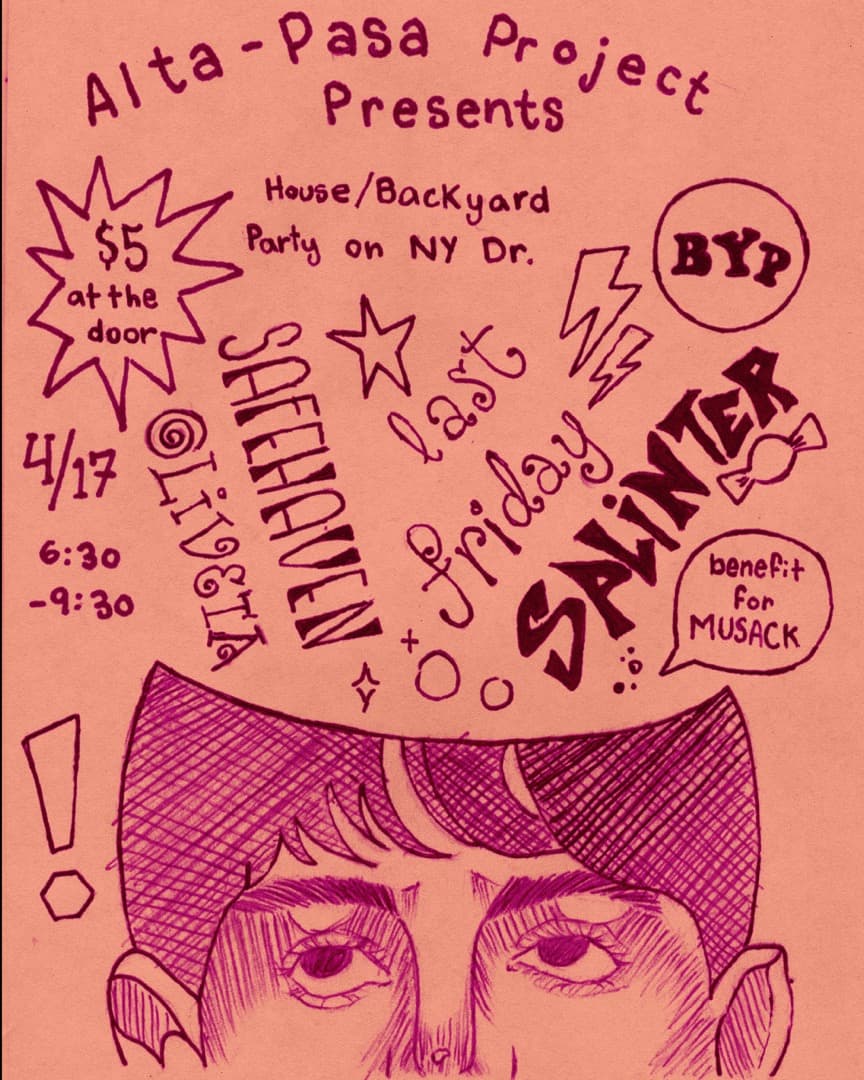 Alta-Pasa Project
Presents
House/Backyard
Party on NY Dr.
$5
at the
door
BYP
4/17
6:30
-9:30
OLIVETA
SAFEHAVEN
last
friday
SPLiNTER
benefit
for
MUSACK
!